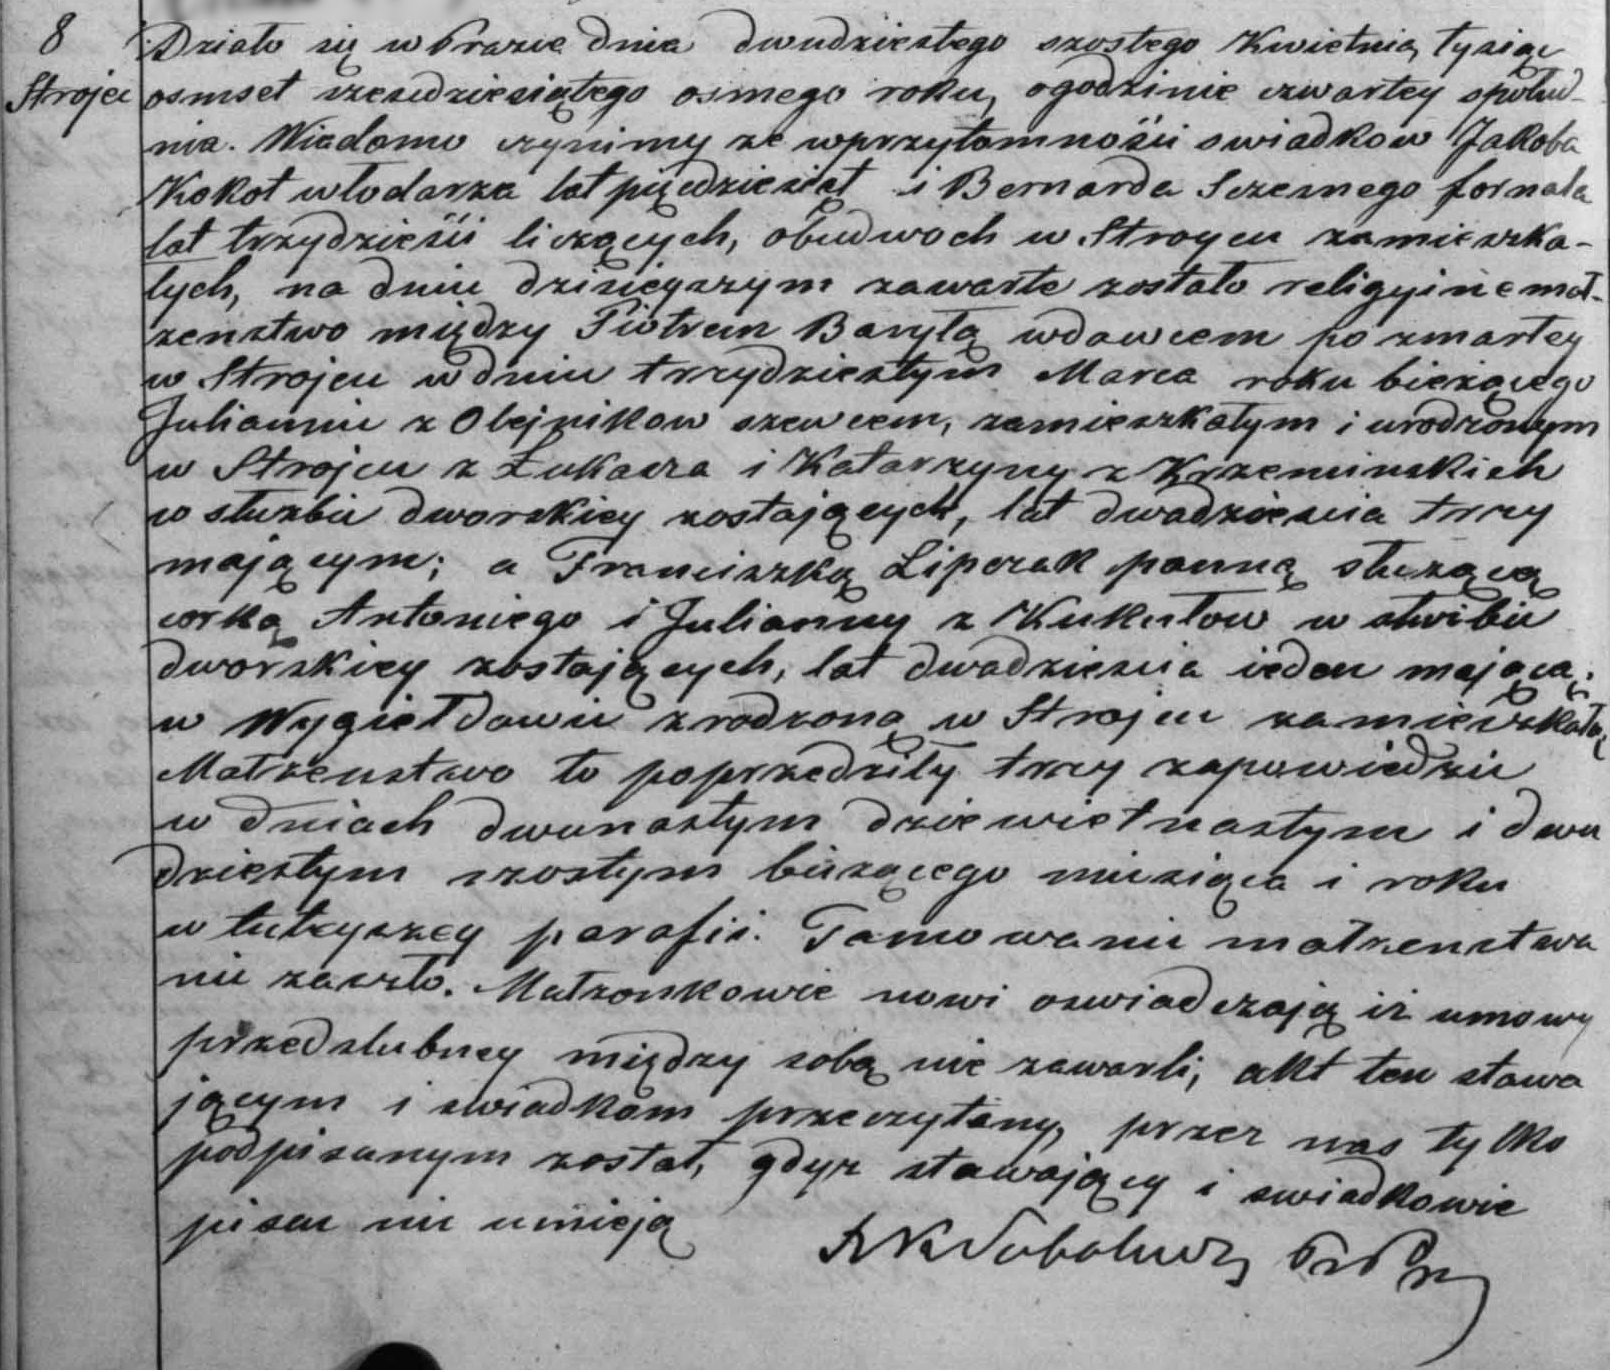 8
Strojec
Działo się w Prazce dnia dwudziestego szostego Kwietnia, tysiąc
osmset szesedziesiątego osmego roku, ogodzinie czwartey społud-
nia. Wiadomo czynimy ze wprzytomności swiadkow Jakoba
Kokot włodarza lat pięcdziesiąt i Bernarda Szczesnego fornala
lat trzydzieści liczących, obudwoch w Stroycu zamieszka-
łych, na dniu dzisieyszym zawarte zostało religyine mał-
zenstwo między Piotrem Baryłą wdowcem po zmarłey
w Strojcu w dniu trzydziestym Marca roku bieżącego
Juliannie z Olejnikow szewcem, zamieszkałym i urodzonym
w Strojcu z Łukasza i Katarzyny z Krzeminskich
w słuzbie dworskiey zostających, lat dwadziescia trzy
mającym; a Franciszką Lipczak panną słuzącą
corką Antoniego i Julianny z Kukułow w słuzbie
dworskiey zostających, lat dwadziescia ieden mającą;
w Wygiełdowie zrodzoną w Strojcu zamieszkałą,
Matzenstwo to poprzedziły trzy zapowiedzie
w dniach dwunastym dziewietnastym i dwu
dziestym szostym bieżącego miesiąca i roku
w tuteyszey parafii. Tamowanie małzenstwa
nie zaszło. Małzonkowie nowi oswiadczają iż umowy
przedslubney między sobą nie zawarli, akt ten stawa
jącym i swiadkom przeczytany, przez nas tylko
podpisanym został, gdyz stawający i swiadkowie
pisac nie umieją